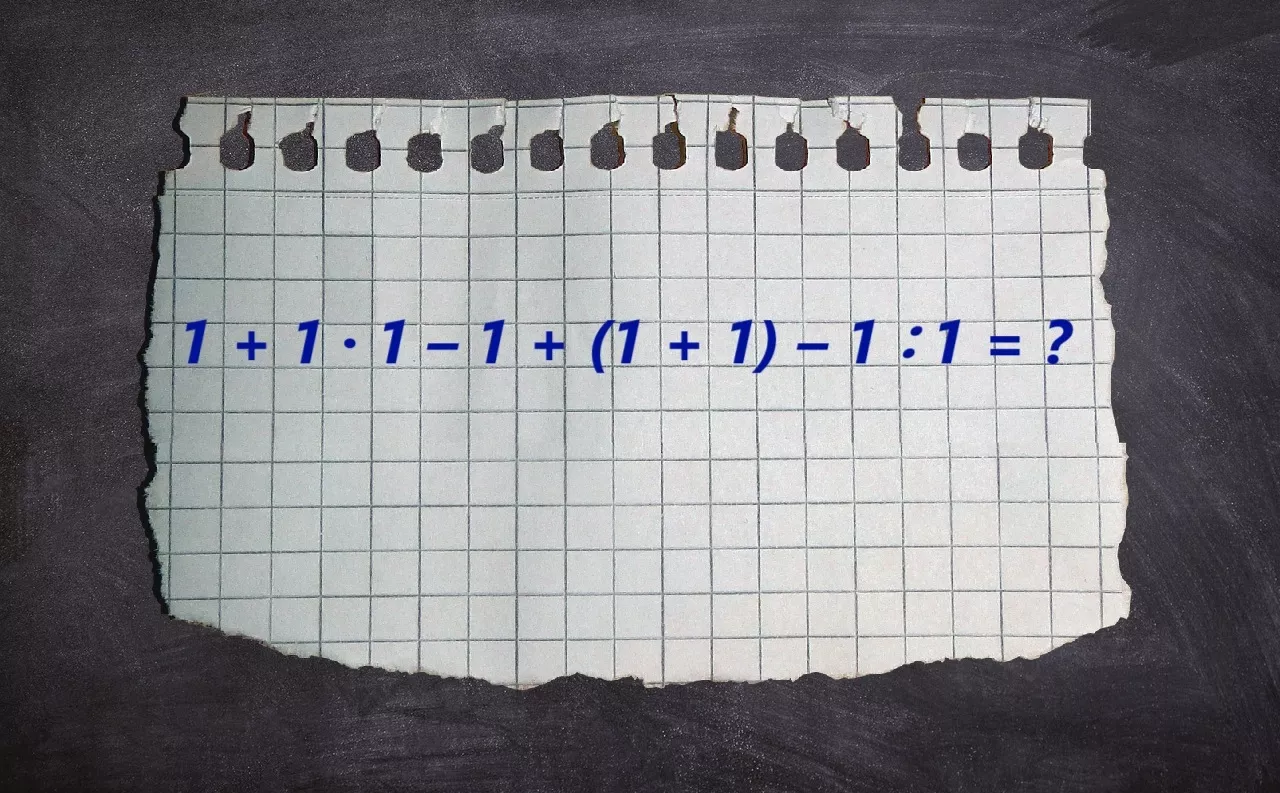 1 + 1 · 1 – 1 + (1 + 1) – 1 : 1 = ?